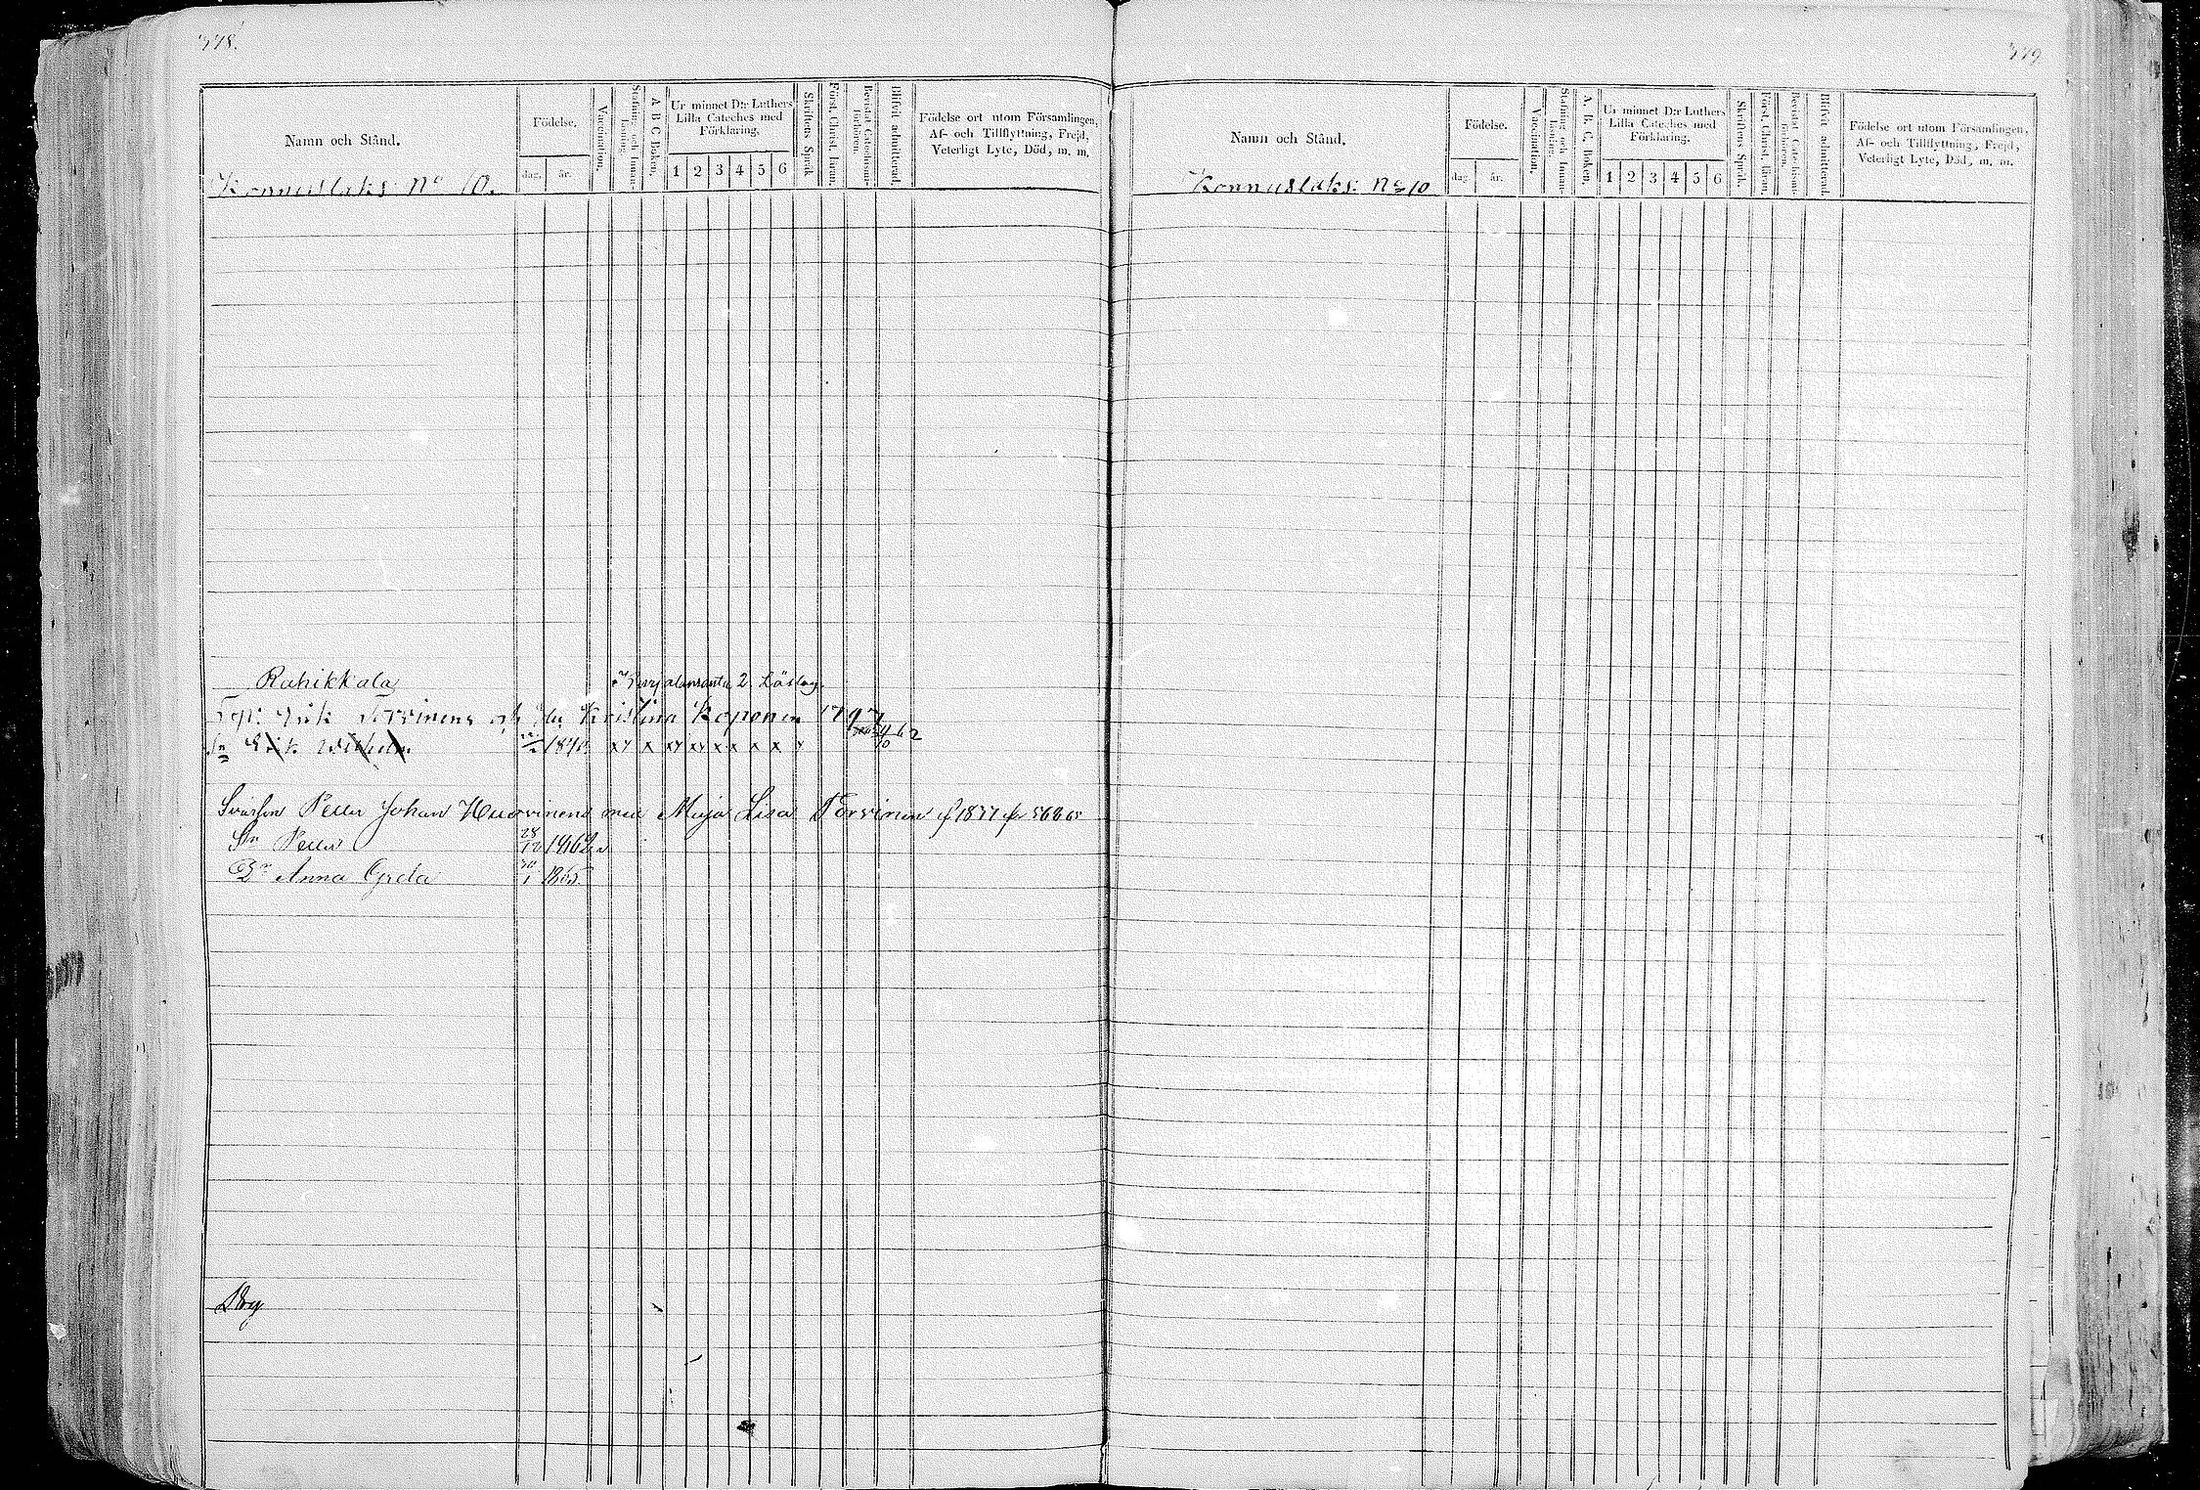 378.
Namn och Stånd.
Födelse.
dag. år.
Vaccination.
Stafning och Innan-läsning.
A B C Boken.
Ur minnet D:r Luthers Lilla Cateches med Förklaring.
1 2 3 4 5 6
Skriftens Språk
Först. Christ. Läran.
Bevistat Catechismi-förhören.
Blifvit admitterad.
Födelse ort utom Församlingen, Af- och Tillflyttning, Frejd, Veterligt Lyte, Död, m. m.
Konnuslaks: No 10.
Rahikkala
2. Läslag.
Erik Torvinens Kristina Koponen 1797
Sn Erik Wilhelm 1840 xy x xy xy x x x x y
Peller Johan Huovinens med Maja Lisa Torvinen f 1837
Sn Peller 28/12 1862
Dr Anna Greta 30/1 1865.
379
Namn och Stånd.
Födelse.
dag år.
Vaccination.
Stafning och Innan-läsning.
A. B. C. Boken.
Ur minnet D:r Luthers Lilla Cateches med Förklaring.
1 2 3 4 5 6
Skriftens Språk.
Först. Christ. Läran.
Bevistat Catechismi-förhören.
Blifvit admitterad.
Födelse ort utom Församlingen, Af- och Tillflyttning, Frejd, Veterligt Lyte, Död, m. m.
Konnuslaks: No 10